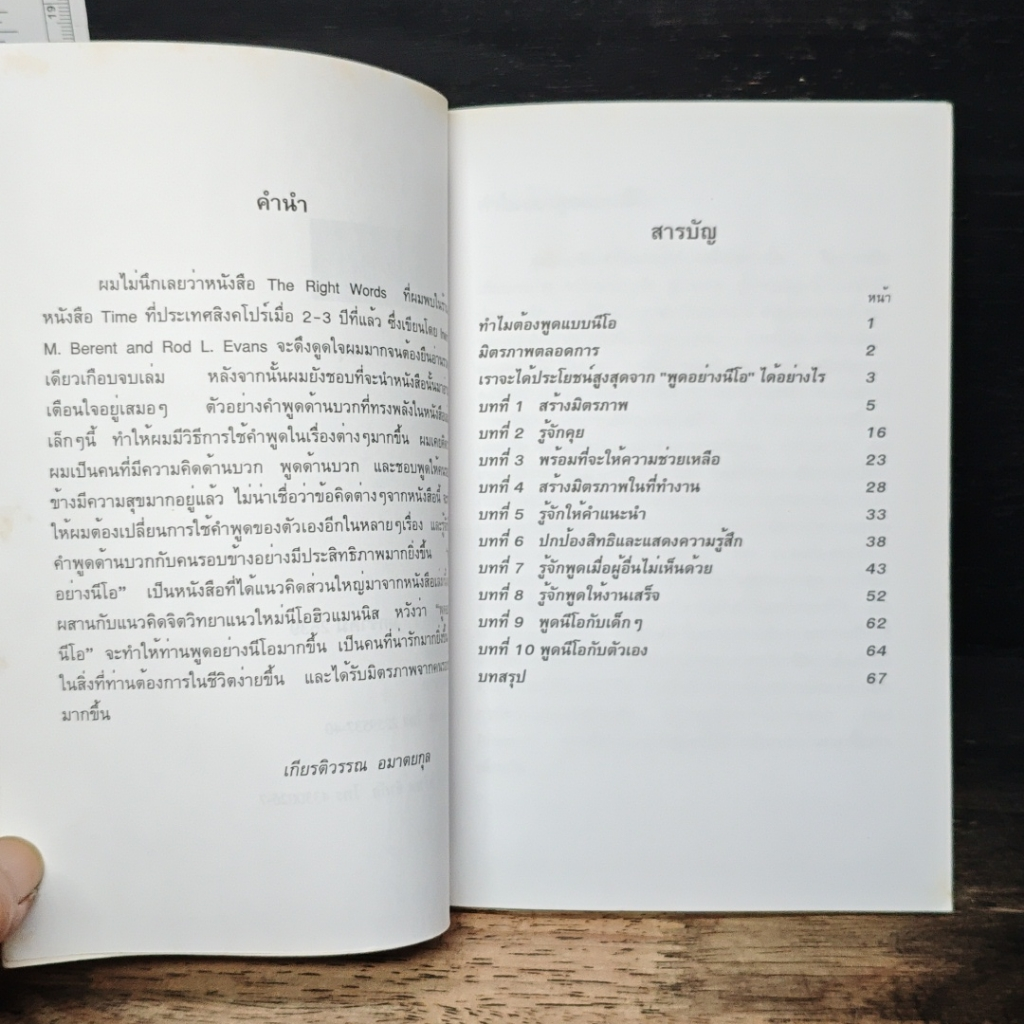 19
คำนำ
ผมไม่นึกเลยว่าหนังสือ The Right Words ที่ผมพบในร้าน
หนังสือ Time ที่ประเทศสิงคโปร์เมื่อ 2-3 ปีที่แล้ว ซึ่งเขียนโดย
M. Berent and Rod L. Evans จะดึงดูดใจผมมากจนต้องยืนอ่าน
เดียวเกือบจบเล่ม หลังจากนั้นผมยังชอบที่จะนำหนังสือนั้นมา
เตือนใจอยู่เสมอๆ ตัวอย่างคำพูดด้านบวกที่ทรงพลังในหนังสือ
เล็กๆนี้ ทำให้ผมมีวิธีการใช้คำพูดในเรื่องต่างๆมากขึ้น ผมเคย
ผมเป็นคนที่มีความคิดด้านบวก พูดด้านบวก และชอบพูดให้คน
ข้างมีความสุขมากอยู่แล้ว ไม่น่าเชื่อว่าข้อคิดต่างๆจากหนังสือนี้
ให้ผมต้องเปลี่ยนการใช้คำพูดของตัวเองอีกในหลายๆเรื่อง และ
คำพูดด้านบวกกับคนรอบข้างอย่างมีประสิทธิภาพมากยิ่งขึ้น
อย่างนีโอ" เป็นหนังสือที่ได้แนวคิดส่วนใหญ่มาจากหนังสือ
ผสานกับแนวคิดจิตวิทยาแนวใหม่นีโอฮิวแมนนิส หวังว่า "พูด
นีโอ" จะทำให้ท่านพูดอย่างนีโอมากขึ้น เป็นคนที่น่ารักมากยิ่งขึ้น
ในสิ่งที่ท่านต้องการในชีวิตง่ายขึ้น และได้รับมิตรภาพจากคน
มากขึ้น
เกียรติวรรณ อมาตยกุล
สารบัญ
หน้า
ทำไมต้องพูดแบบนีโอ 1
มิตรภาพตลอดการ 2
เราจะได้ประโยชน์สูงสุดจาก "พูดอย่างนีโอ" ได้อย่างไร 3
บทที่ 1 สร้างมิตรภาพ 5
บทที่ 2 รู้จักคุย 16
บทที่ 3 พร้อมที่จะให้ความช่วยเหลือ 23
บทที่ 4 สร้างมิตรภาพในที่ทำงาน 28
บทที่ 5 รู้จักให้คำแนะนำ 33
บทที่ 6 ปกป้องสิทธิและแสดงความรู้สึก 38
บทที่ 7 รู้จักพูดเมื่อผู้อื่นไม่เห็นด้วย 43
บทที่ 8 รู้จักพูดให้งานเสร็จ 52
บทที่ 9 พูดนีโอกับเด็กๆ 62
บทที่ 10 พูดนีโอกับตัวเอง 64
บทสรุป 67